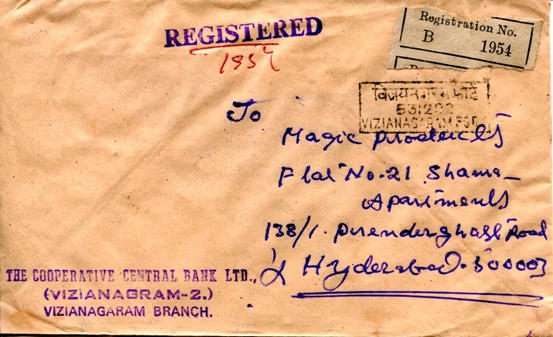 REGISTERED
1954
Registration No.
B 1954
विजयनगरम फोर्ट
VIZIANAGARAM FORT
To
Magic Products
Flat No. 21 Shama-
Apartments
138/1. Prenderghast Road
Hyderabad. 500003
THE COOPERATIVE CENTRAL BANK LTD.,
(VIZIANAGRAM-2.)
VIZIANAGARAM BRANCH.